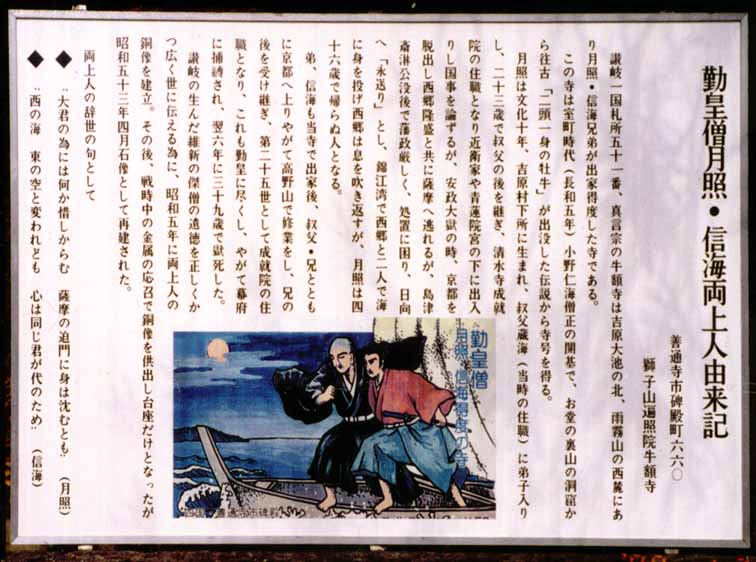 勤皇僧月照・信海両上人由来記
善通寺市碑殿町六六〇
獅子山遍照院牛額寺
讃岐一国札所五十一番、真言宗の牛額寺は吉原大池の北、雨霧山の西麓にあ
り月照・信海兄弟が出家得度した寺である。
この寺は室町時代(長和五年)小野仁海僧正の開基で、お堂の裏山の洞窟か
ら往古〝二頭一身の牡牛〟が出没した伝説から寺号を得る。
月照は文化十年、吉原村下所に生まれ、叔父蔵海(当時の住職)に弟子入り
し、二十三歳で叔父の後を継ぎ、清水寺成就
院の住職となり近衛家や青蓮院宮の下に出入
りし国事を論ずるが、安政大獄の時、京都を
脱出し西郷隆盛と共に薩摩へ逃れるが、島津
斎淋公没後で藩政厳しく、処置に困り、日向
へ「永送り」とし、錦江湾で西郷と二人で海
に身を投げ西郷は息を吹き返すが、月照は四
十六歳で帰らぬ人となる。
弟、信海も当寺で出家後、叔父・兄ととも
に京都へ上りやがて高野山で修業をし、兄の
後を受け継ぎ、第二十五世として成就院の住
職となり、これも勤皇に尽くし、やがて幕府
に捕縛され、翌六年に三十九歳で獄死した。
讃岐の生んだ維新の傑僧の遺徳を正しくか
つ広く世に伝える為に、昭和五年に両上人の
銅像を建立。その後、戦時中の金属の応召で銅像を供出し台座だけとなったが
昭和五十三年四月石像として再建された。
両上人の辞世の句として
◆〝大君の為には何か惜しからむ 薩摩の迫門に身は沈むとも〟(月照)
◆〝西の海 東の空と変われども 心は同じ君が代のため〟(信海)
勤皇僧
月照・信海得度の寺